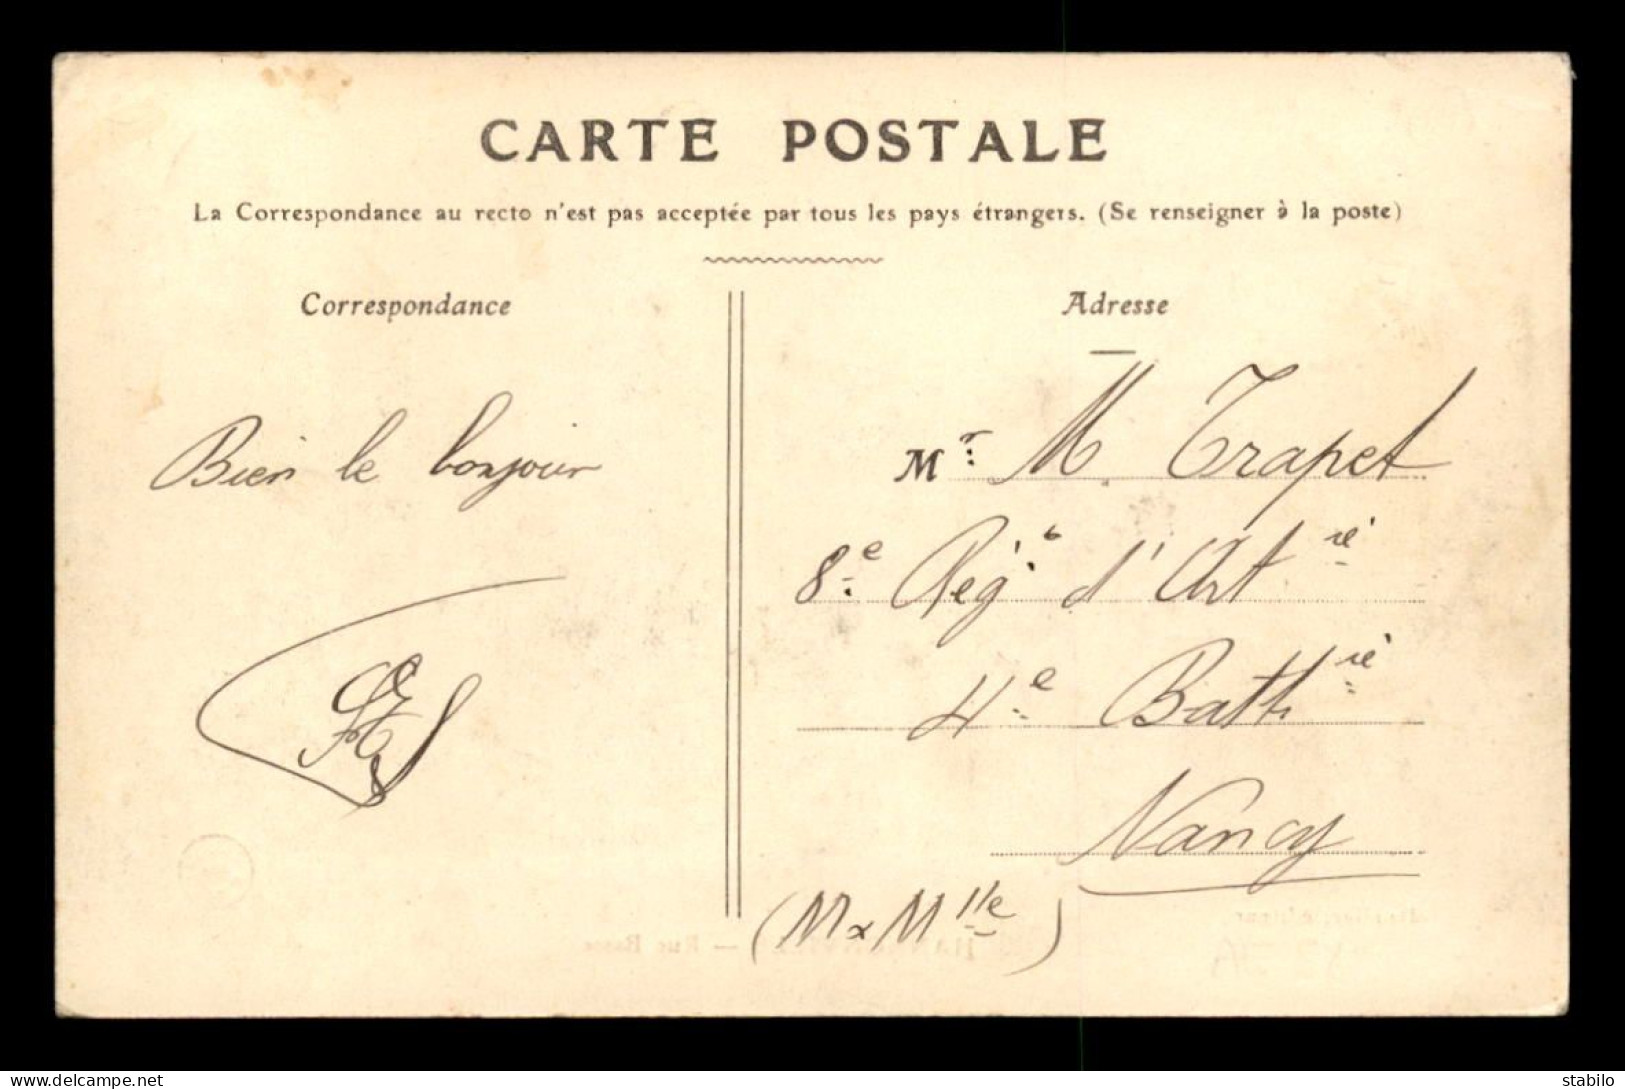 CARTE POSTALE
La Correspondance au recto n'est pas acceptée par tous les pays étrangers. (Se renseigner à la poste)
Correspondance
Bien le bonjour
Adresse
Mr. M. Trapet
8e Régt d'Artie
4e Battie
Nancy
(M x Mlle)
delcampe.net
stabilo